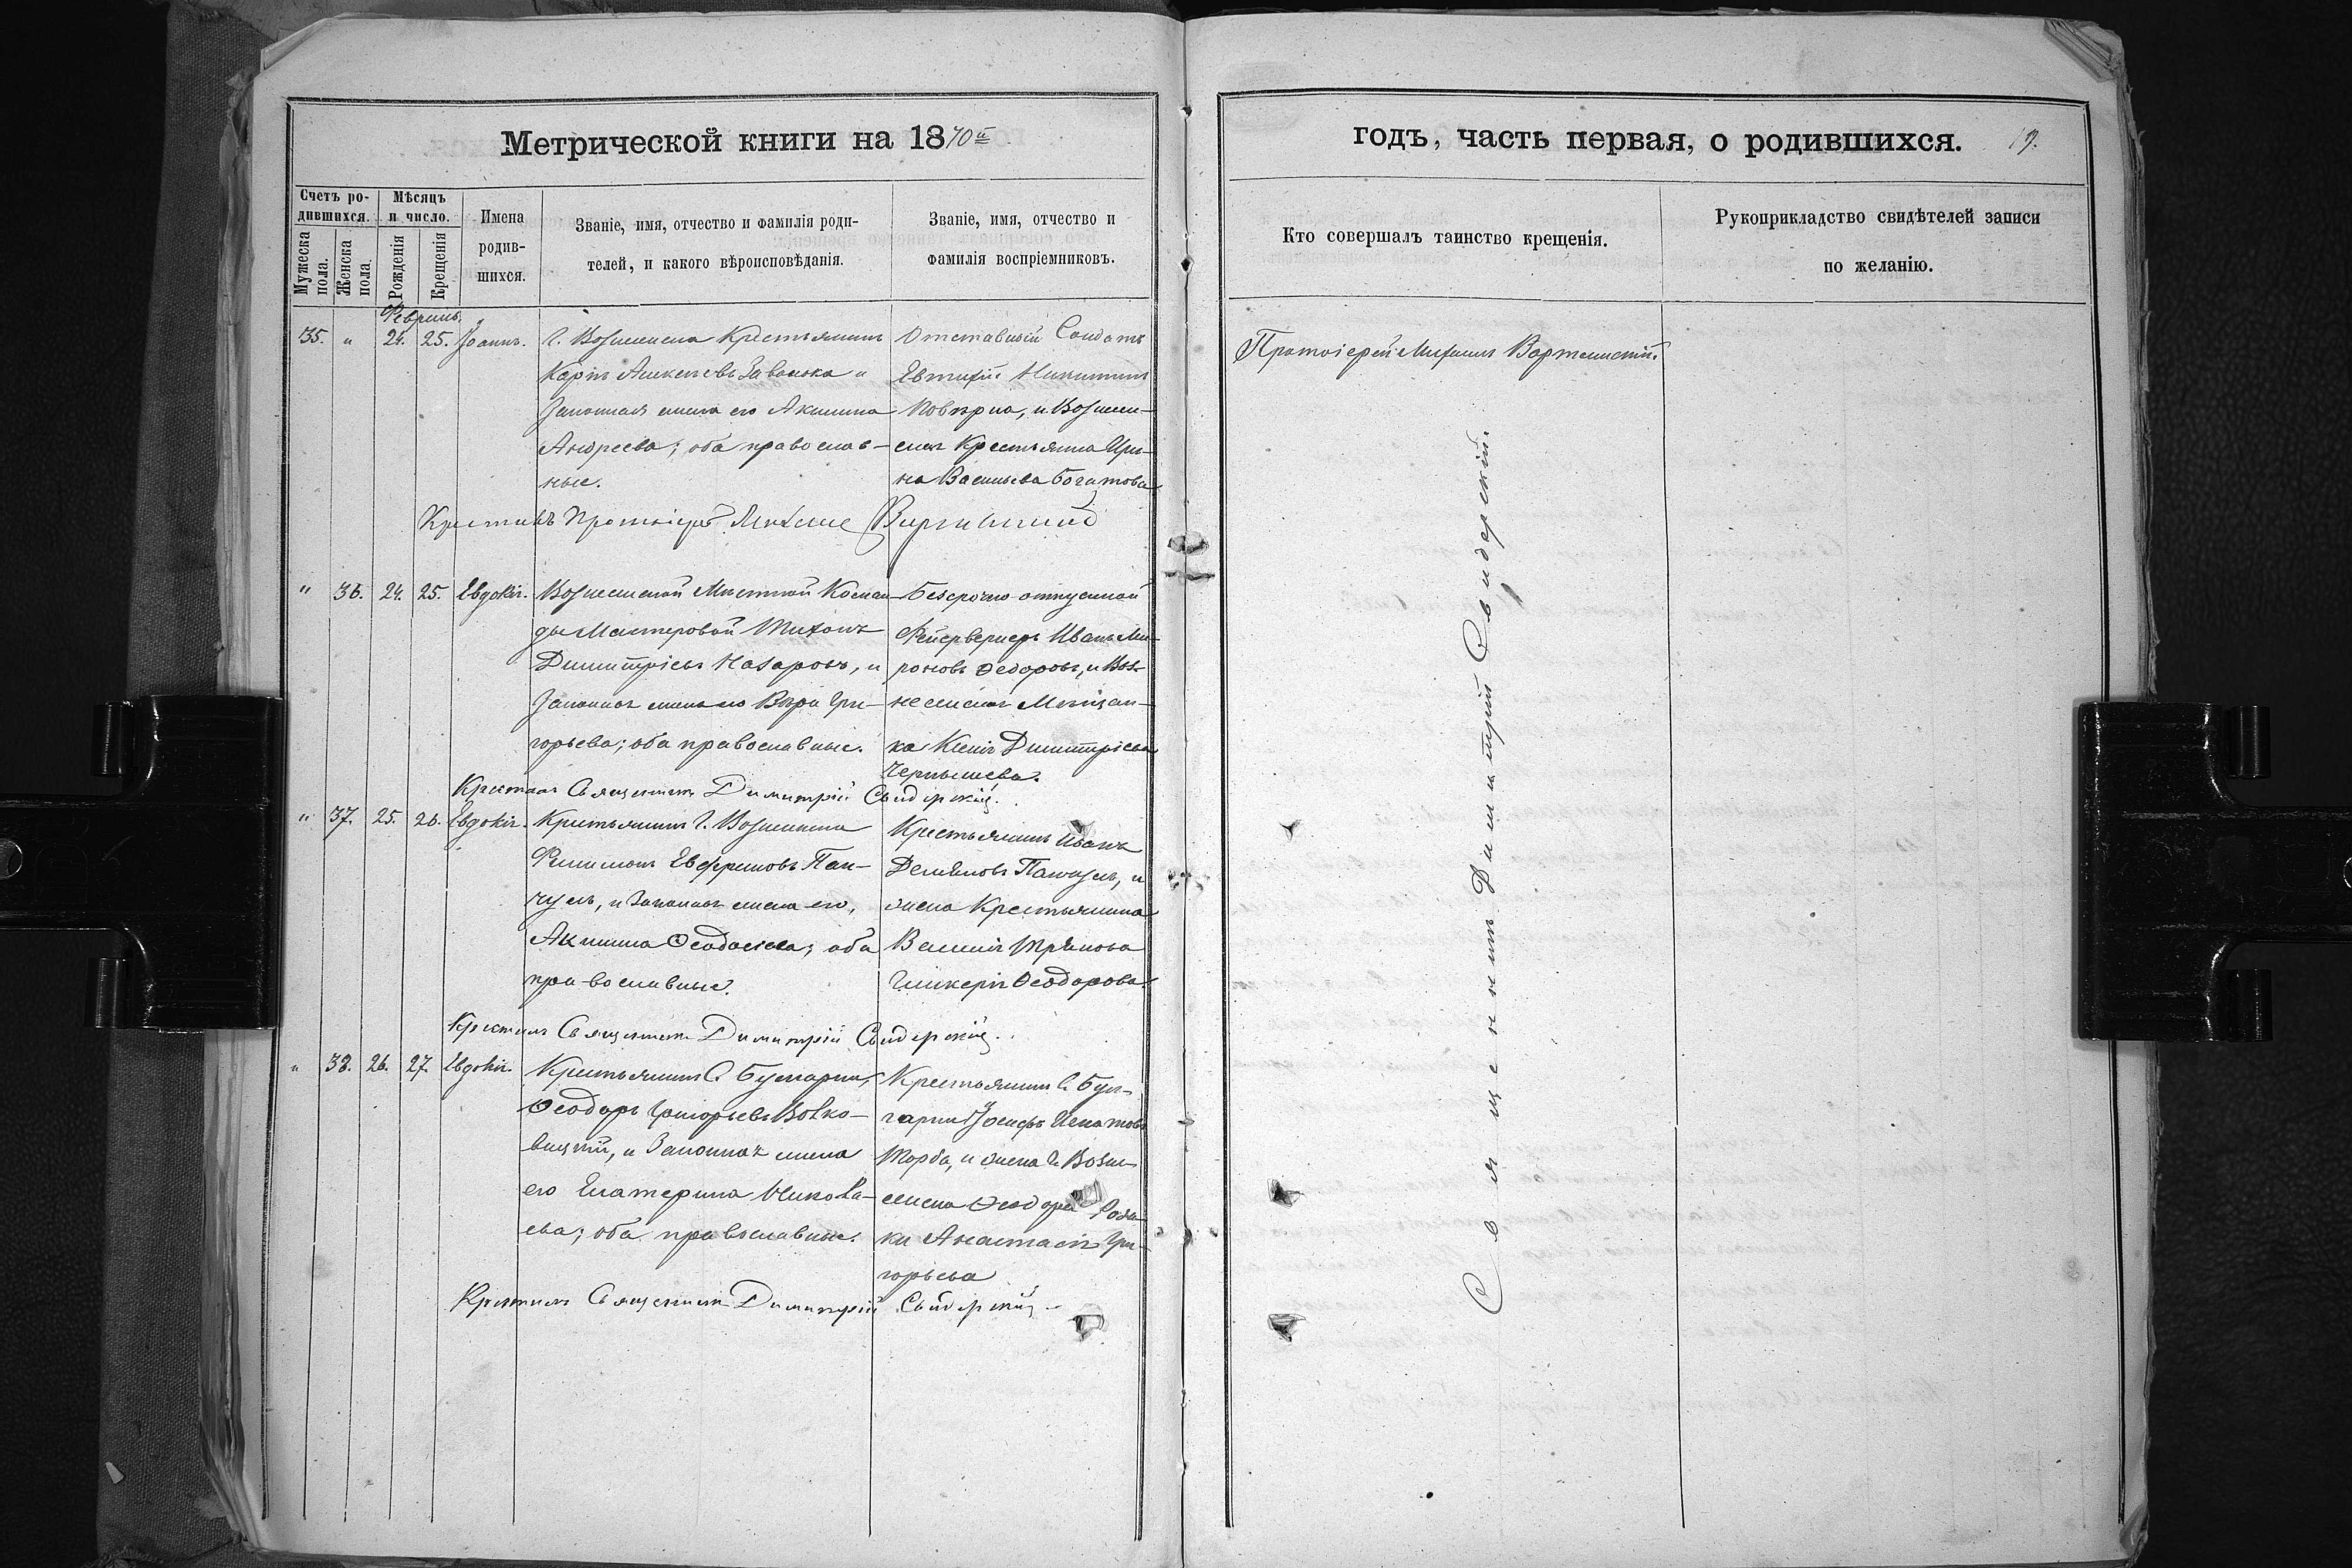 Метрической книги на 1870й
Счетъ ро-
дившихся.
Мѣсяцъ
и число.
Мужеска
пола.
Женска
пола.
Рожденія
Крещенія
Имена
родив-
шихся.
Званіе, имя, отчество и фамилія роди-
телей, и какого вѣроисповѣданія.
Званіе, имя, отчество и
фамилія воспріемниковъ.
35. " 24. 25. Іоаннъ. Г. Вознесенска Крестьянинъ
Карпъ Алексѣевъ и
Законная жена его Акилина
Андреева; оба православ-
ные.
Отставный Солдатъ
Евтихій Никитинъ
и Вознесен-
ская Крестьянка Ири-
на Васильева Богатова
Крестилъ Протоіерей Михаилъ
" 36. 24. 25. Евдокія. Вознесенской Мѣстной Коман-
ды Мастеровой Тихонъ
Димитріевъ Назаровъ, и
Законная жена его Вѣра Гри-
горьева; оба православные.
Безсрочно-отпускной
Фейерверкеръ Иванъ Ми-
роновъ Ѳедоровъ, и Воз-
несенская Мѣщан-
ка Ксенія Димитріева
Чернышева.
Крестилъ Священникъ Димитрій Свидерскій.
" 37. 25. 26. Евдокія. Крестьянинъ Г. Вознесенска
Филимонъ Евфремовъ Пан-
чулъ, и Законная жена его,
Акилина Ѳеодосіева; оба
православные.
Крестьянинъ Иванъ
Демьяновъ и
жена Крестьянина
Василія
Гликерія Ѳеодорова.
Крестилъ Священникъ Димитрій Свидерскій.
" 38. 26. 27. Евдокія. Крестьянинъ С. Булгарки,
Ѳеодоръ Григорьевъ Волко-
вицкій, и Законная жена
его Екатерина Никола-
ева; оба православные.
Крестьянинъ С. Бул-
гарки Іосифъ Игнатовъ
Торба, и жена Г. Возне-
сенска Ѳеодора
Анастасія Гри-
горьева
Крестилъ Священникъ Димитрій Свидерскій
годъ, часть первая, о родившихся.
Кто совершалъ таинство крещенія.
Рукоприкладство свидѣтелей записи
по желанію.
Протоіерей Михаилъ
Священникъ Димитрій Свидерскій.